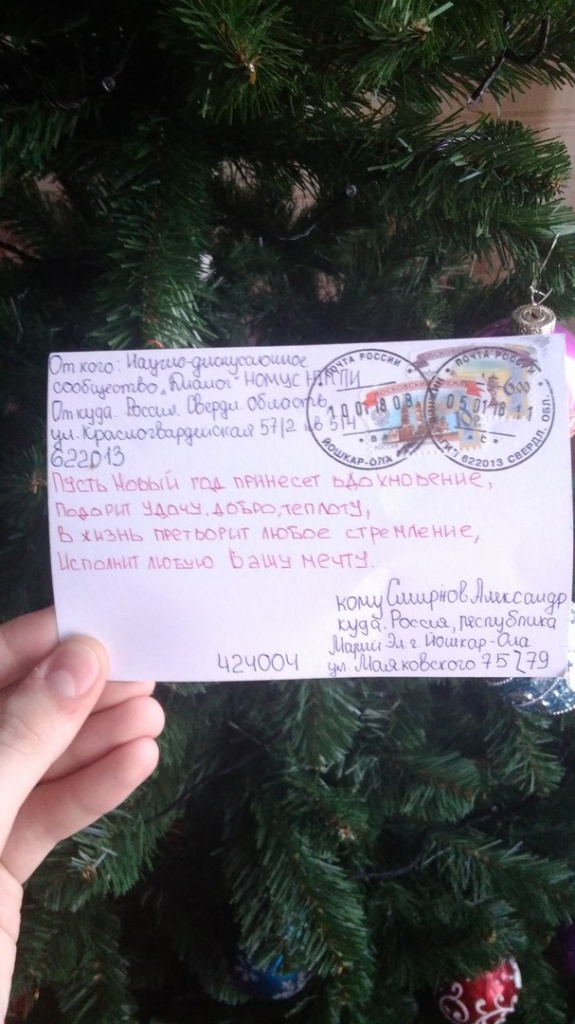 От кого: Научно-дискуссионное
сообщество „Диалог" НОМУС НТГСПИ
Откуда. Россия. Свердл. Область,
ул. Красногвардейская 57/2 кв 514
622013
Пусть Новый год принесет вдохновение,
Подарит удачу, добро, теплоту,
В жизнь претворит любое стремление,
Исполнит любую Вашу мечту.
кому Смирнов Александр
куда. Россия, республика
Марий Эл г Йошкар-Ола
ул. Маяковского 75 79
424004
ПОЧТА РОССИИ
10 01 18 08
ЙОШКАР-ОЛА
ПОЧТА РОССИИ
05 01 18 11
622013 СВЕРДЛ. ОБЛ.